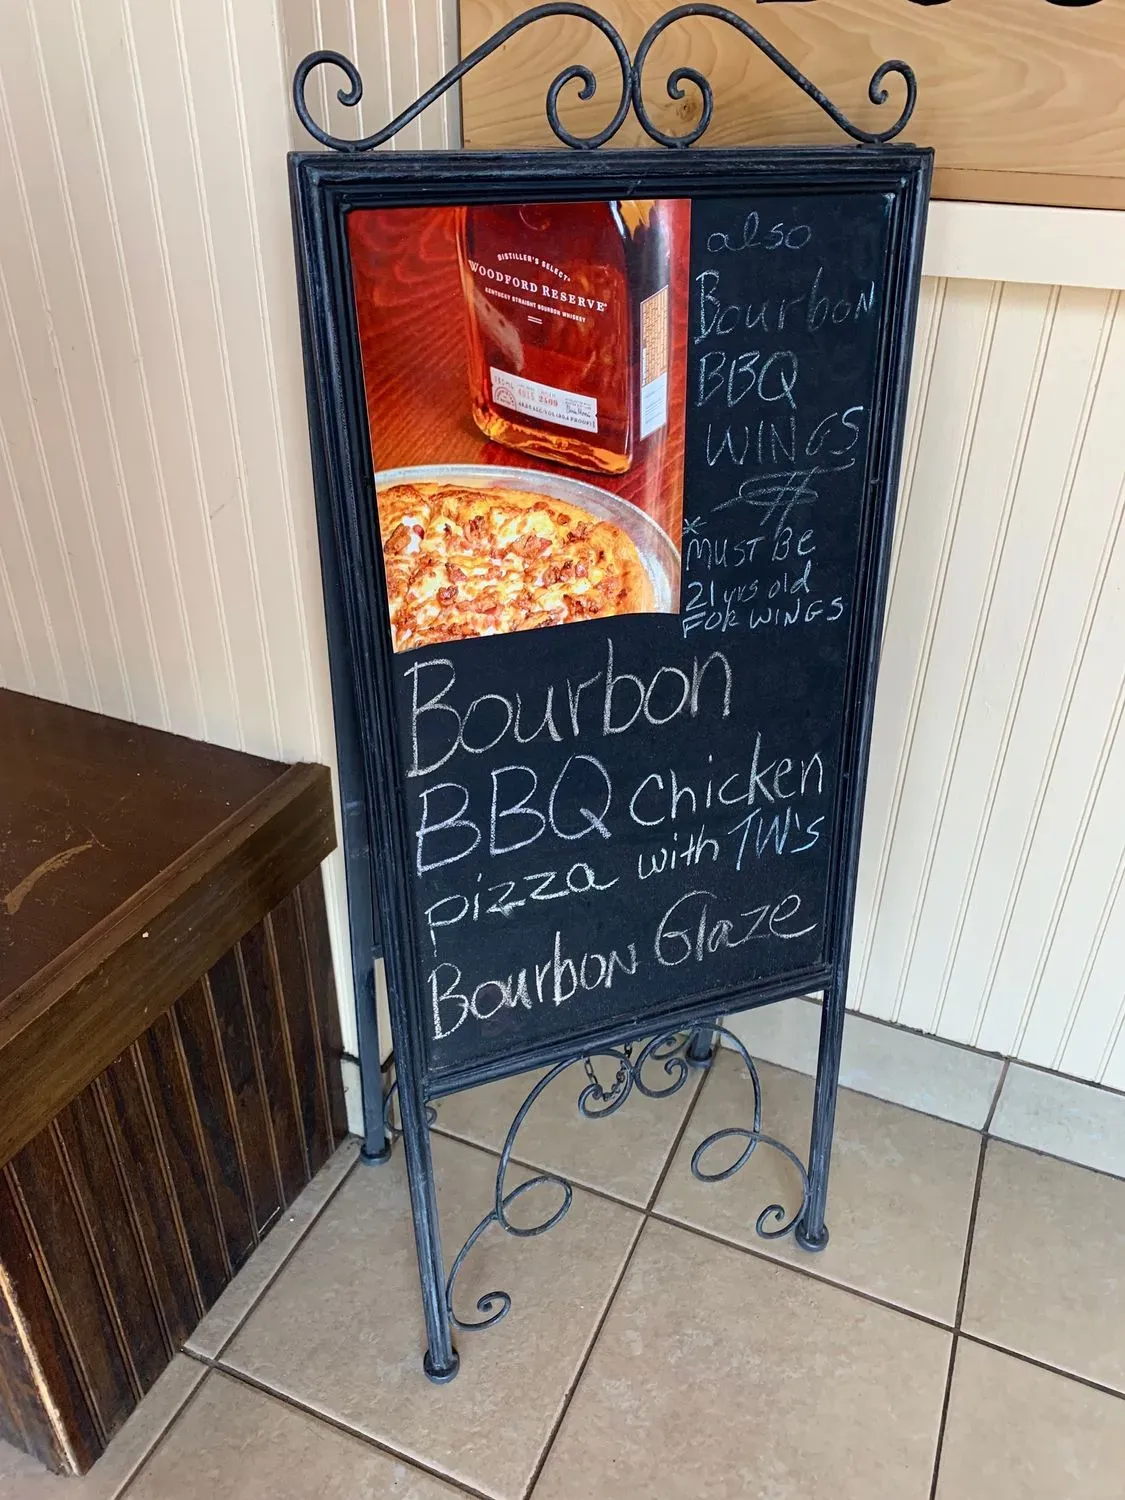 DISTILLER'S SELECT
WOODFORD RESERVE
KENTUCKY STRAIGHT BOURBON WHISKEY
also
Bourbon
BBQ
WINGS
*
MUST BE
21 yrs old
FOR WINGS
Bourbon
BBQ chicken
pizza with TW's
Bourbon Glaze